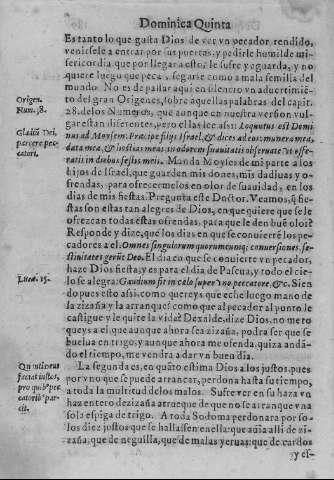 Dominica Quinta
Es tanto lo que gusta Dios de ver vn pecador rendido,
venirsele a entrar por sus puertas, y pedirle humilde mi-
sericordia que por llegar a esto, le sufre y aguarda, y no
quiere luego que peca segarle como a mala semilla del
mundo. No es de passar aqui en silencio vn aduertimiẽ-
to del gran Origenes, sobre aquellas palabras del capit.
Origen.
Num. 28.
28. de los Numeros, que aunque en nuestra version vul-
gar estan diferentes, pero el las lee assi: Loquutus est Domi-
Gladiũ Dei
parcere pec-
catori.
nus ad Moysem. Præcipe filijs Israel, & dices ad eos: munera mea,
data mea, & hostias meas in odorem suauitatis obseruate vt offe-
ratis in diebus festis meis. Manda Moyses de mi parte a los
hijos de Israel, que guarden mis dones, mis dadiuas y o-
frendas, para ofrecermelos en olor de suauidad, en los
dias de mis fiestas. Pregunta este Doctor. Veamos, q̃ fies-
tas son estas tan alegres de Dios, en que quiere que se le
ofrezcan todas estas ofrendas, para que le den buẽ olor?
Responde y dize, que los dias en que se conuierte los pe-
cadores a el: Omnes singulorum quorumcunq; conuersiones, fe-
stiuitates gerũt Deo. El dia en que se conuierte vn pecador,
haze Dios fiesta, y es para el dia de Pascua, y todo el cie-
Lucæ. 15.
lo se alegra: Gaudium fit in cœlo super vno peccatore, &c. Sien
do pues esto assi, como quereys que eche luego mano de
la zizaña y la arranque? como que al pecador al punto le
castigue y le quite la vida? Dexalde, dize Dios, no mere
queys a el, que aunque ahora sea zizaña, podra ser que se
buelua en trigo, y aunque ahora me ofenda, quiza andã-
do el tiempo, me vendra a dar vn buen dia.
La segunda es, en quãto estima Dios a los justos, pues
por vno que se puede arrancar, perdona hasta su tiempo,
pro quib⁹ pec
catorib⁹ par-
cit.
a toda la multitud de los malos. Sufre ver en su haza vn
haz entero de zizaña a trueque de que no se arranque vna
sola espiga de trigo. A toda Sodoma perdonara por so-
los diez justos que se hallassen en ella: que aũ aalli de zi-
zaña, que de neguilla, que de malas yeruas: que de cardos
y es-